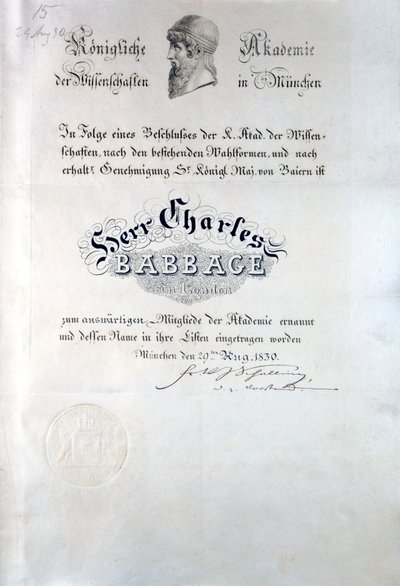 15
29 Aug 30
Königliche Akademie
der Wissenschaften in München
In Folge eines Beschlusses der K. Akad. der Wissen-
schaften, nach den bestehenden Wahlformen, und nach
erhaltr. Genehmigung Sr. Königl. Maj. von Baiern ist
Herr Charles
BABBAGE
in London
zum auswärtigen Mitgliede der Akademie ernannt
und dessen Name in ihre Listen eingetragen worden
München den 29ten Aug. 1830.
Schelling